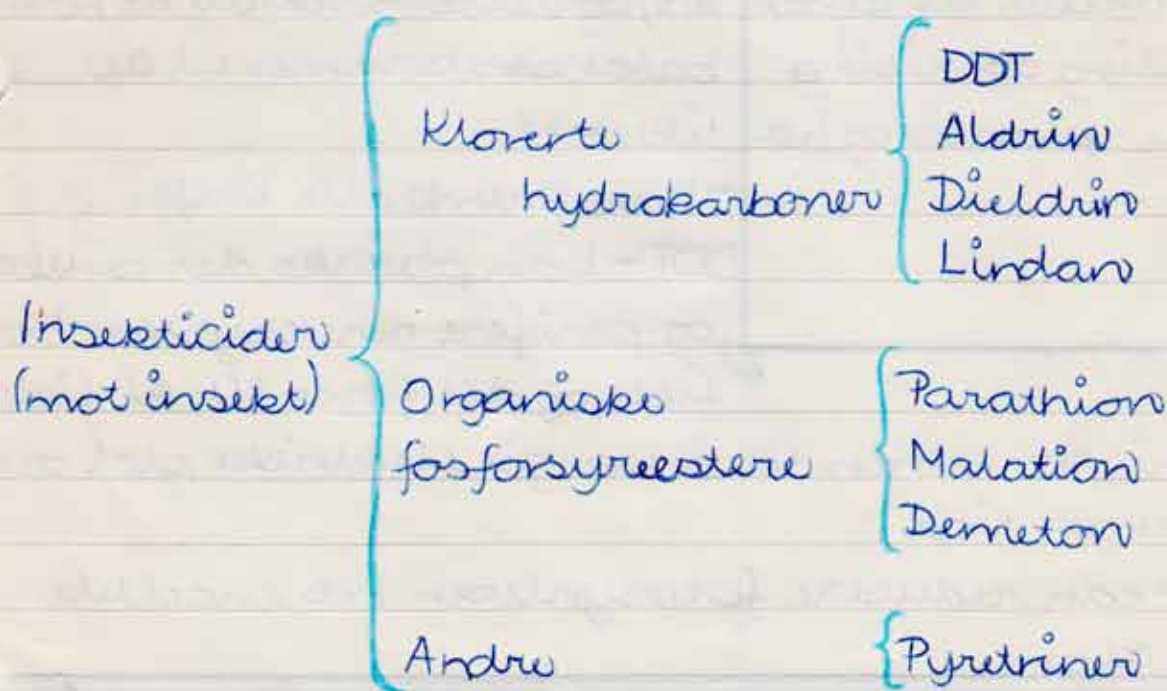 Insekticider
(mot insekt)
Klorerte
hydrokarboner
DDT
Aldrin
Dieldrin
Lindan
Organiske
fosforsyreestere
Parathion
Malation
Demeton
Andre
Pyretriner